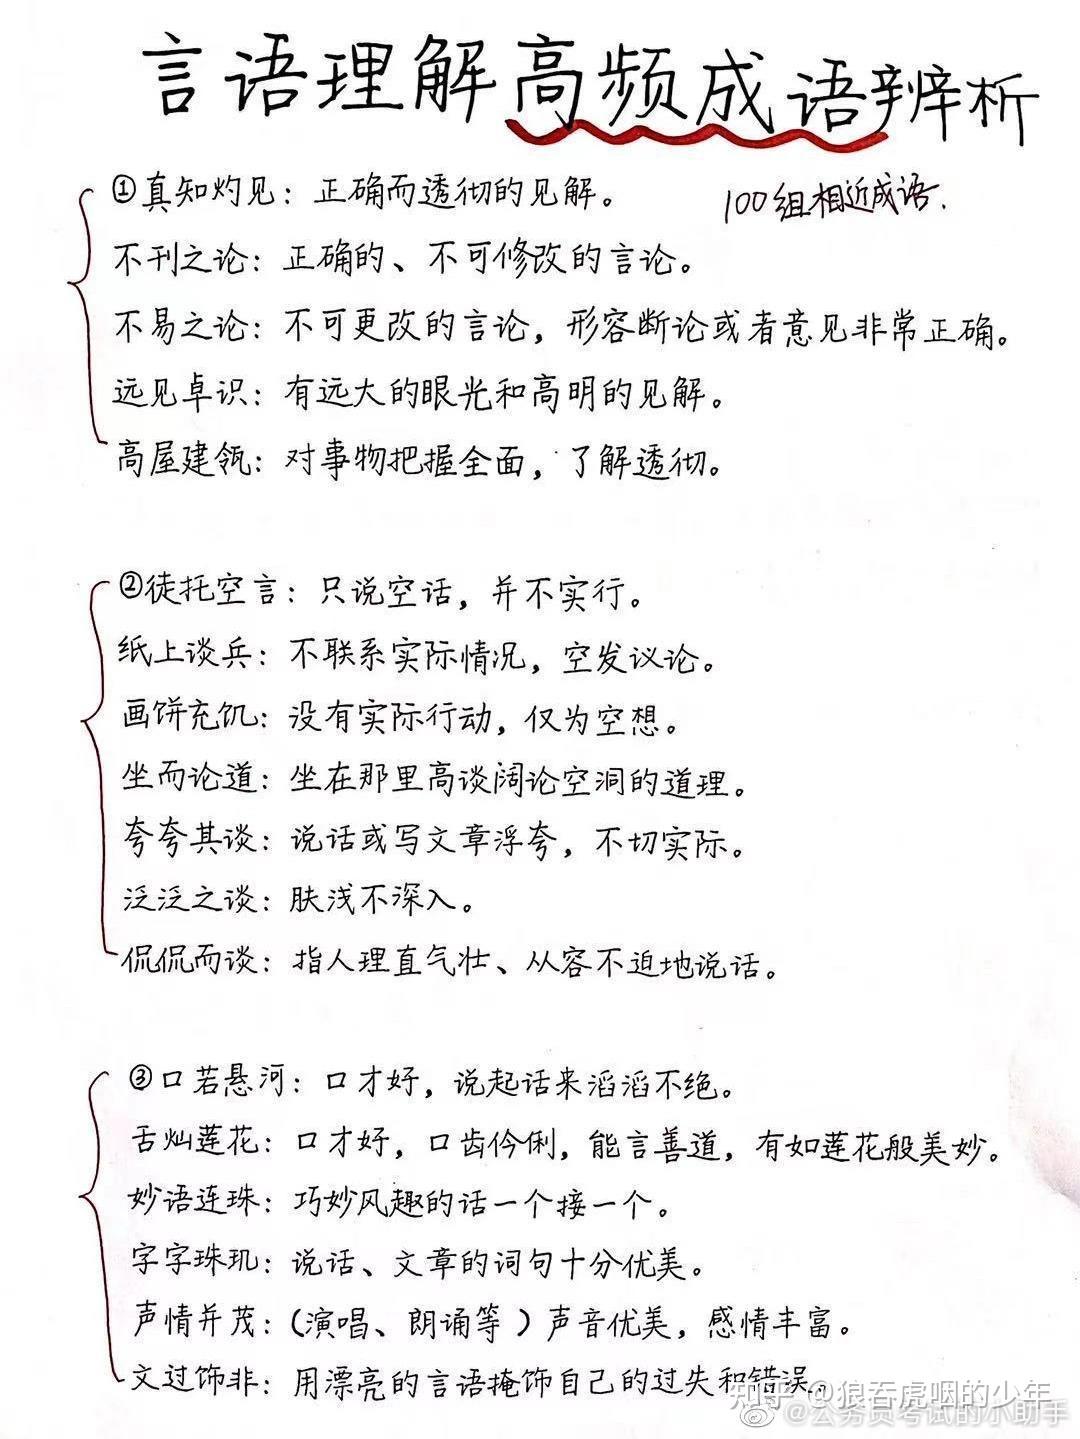 言语理解高频成语辨析
①真知灼见：正确而透彻的见解。
100组相近成语.
不刊之论：正确的、不可修改的言论。
不易之论：不可更改的言论，形容断论或者意见非常正确。
远见卓识：有远大的眼光和高明的见解。
高屋建瓴：对事物把握全面，了解透彻。
②徒托空言：只说空话，并不实行。
纸上谈兵：不联系实际情况，空发议论。
画饼充饥：没有实际行动，仅为空想。
坐而论道：坐在那里高谈阔论空洞的道理。
夸夸其谈：说话或写文章浮夸，不切实际。
泛泛之谈：肤浅不深入。
侃侃而谈：指人理直气壮、从容不迫地说话。
③口若悬河：口才好，说起话来滔滔不绝。
舌灿莲花：口才好，口齿伶俐，能言善道，有如莲花般美妙。
妙语连珠：巧妙风趣的话一个接一个。
字字珠玑：说话、文章的词句十分优美。
声情并茂：(演唱、朗诵等）声音优美，感情丰富。
文过饰非：用漂亮的言语掩饰自己的过失和错误。
知乎 @狼吞虎咽的少年
@公务员考试的小助手